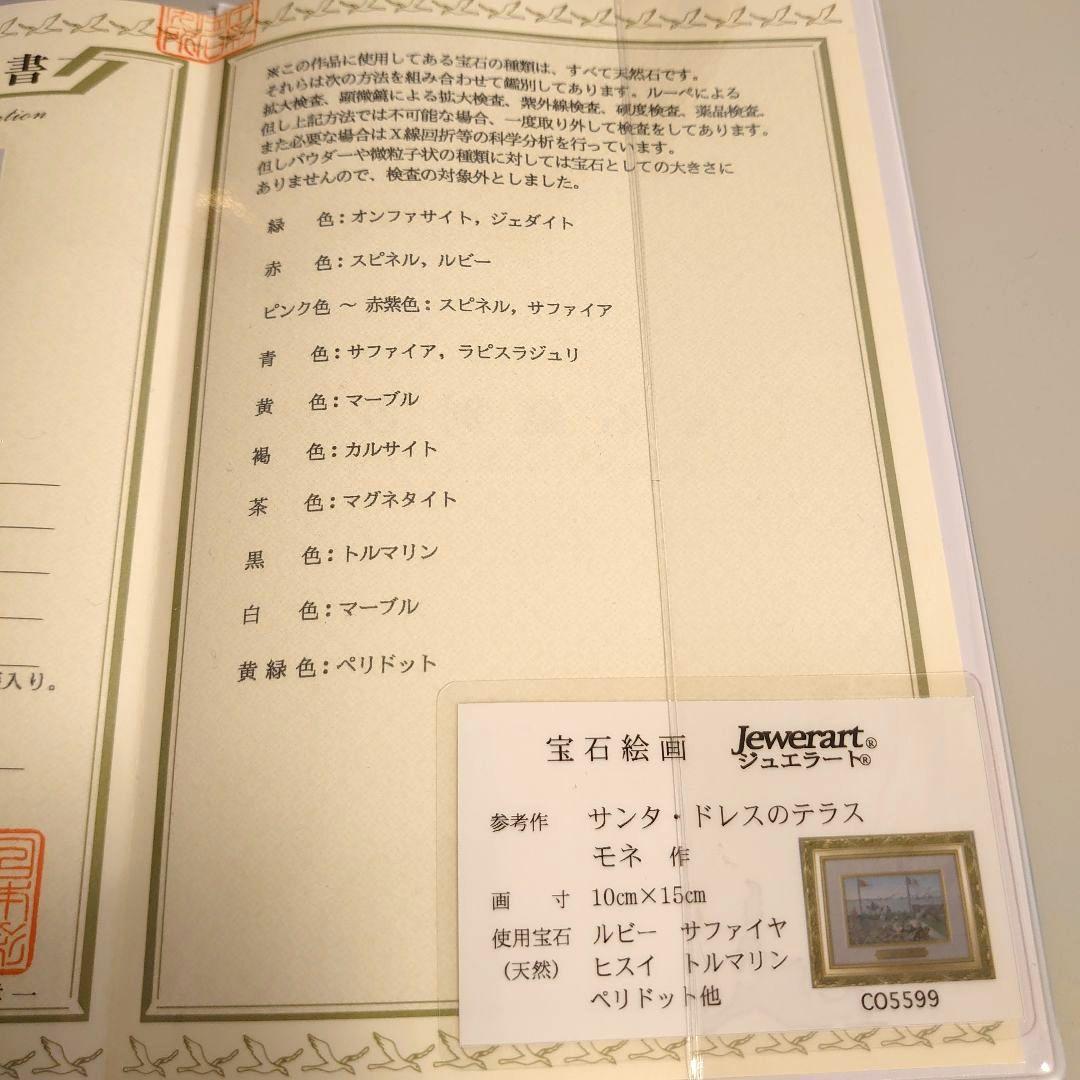 書
ction
入り。
一
※この作品に使用してある宝石の種類は、すべて天然石です。
それらは次の方法を組み合わせて鑑別してあります。ルーペによる
拡大検査、顕微鏡による拡大検査、紫外線検査、硬度検査、薬品検査。
但し上記方法では不可能な場合、一度取り外して検査をしてあります。
また必要な場合はX線回折等の科学分析を行っています。
但しパウダーや微粒子状の種類に対しては宝石としての大きさに
ありませんので、検査の対象外としました。
緑 色：オンファサイト，ジェダイト
赤 色：スピネル，ルビー
ピンク色 ～ 赤紫色：スピネル，サファイア
青 色：サファイア，ラピスラジュリ
黄 色：マーブル
褐 色：カルサイト
茶 色：マグネタイト
黒 色：トルマリン
白 色：マーブル
黄緑色：ペリドット
宝石絵画 Jewerart®
ジュエラート®
参考作 サンタ・ドレスのテラス
モネ 作
画 寸 10cm×15cm
使用宝石 ルビー サファイヤ
(天然) ヒスイ トルマリン
ペリドット他
CO5599